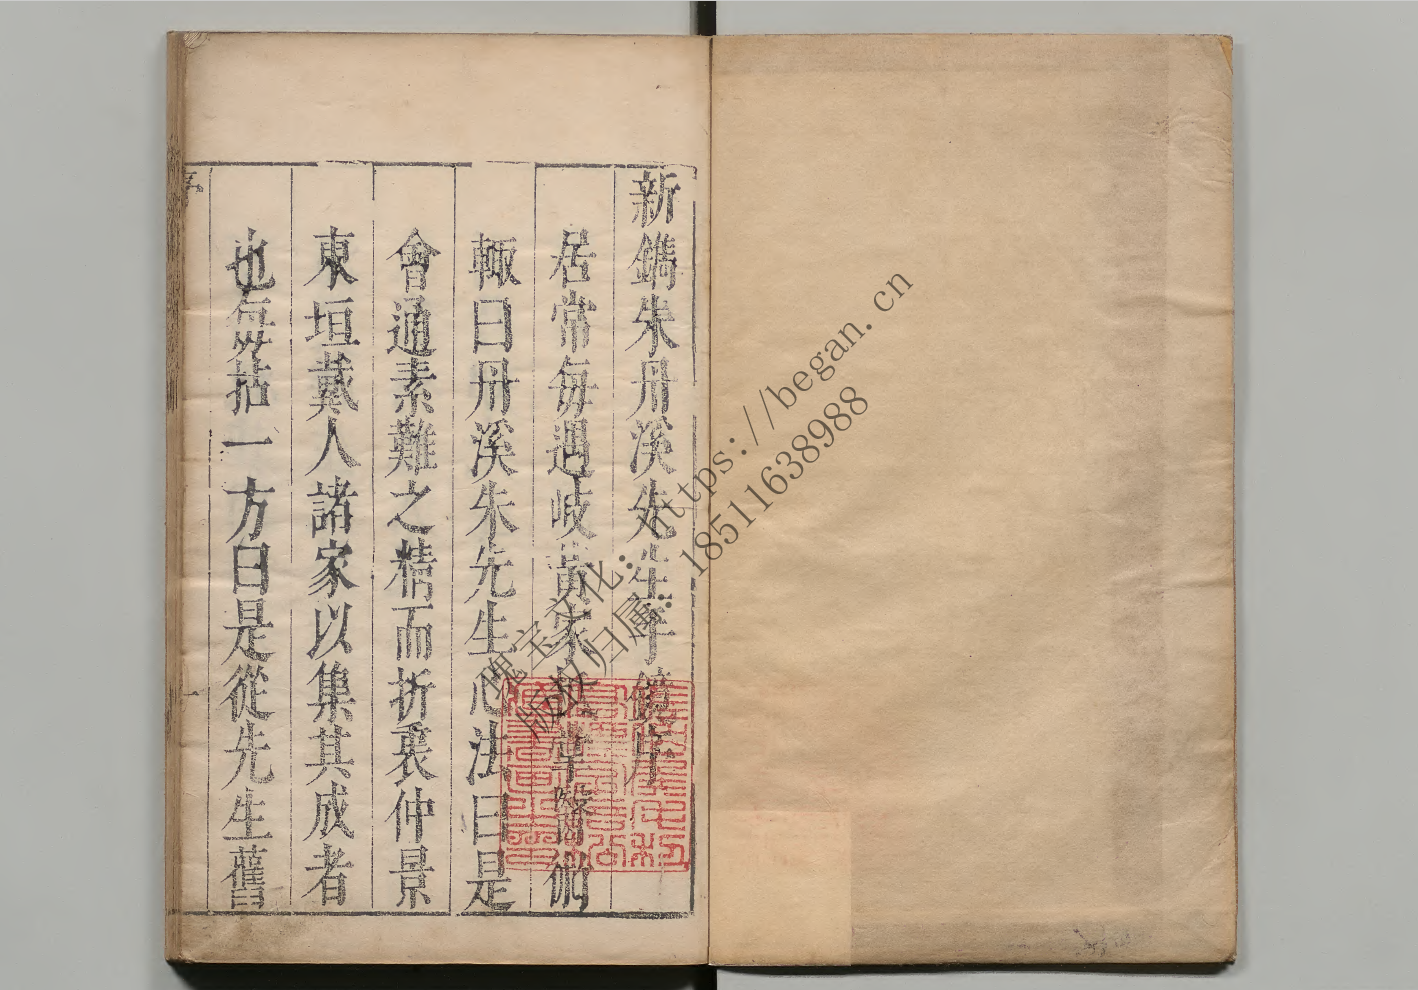 新鐫朱丹溪先生 鏡序
居常每遇岐黃家 輩醫
輙曰丹溪朱先生心法曰是
會通素難之精而折衷仲景
東垣戴人諸家以集其成者
也每拈一方曰是從先生舊
序
一
瑰宝文化：https://began.cn
版权归属：18511638988